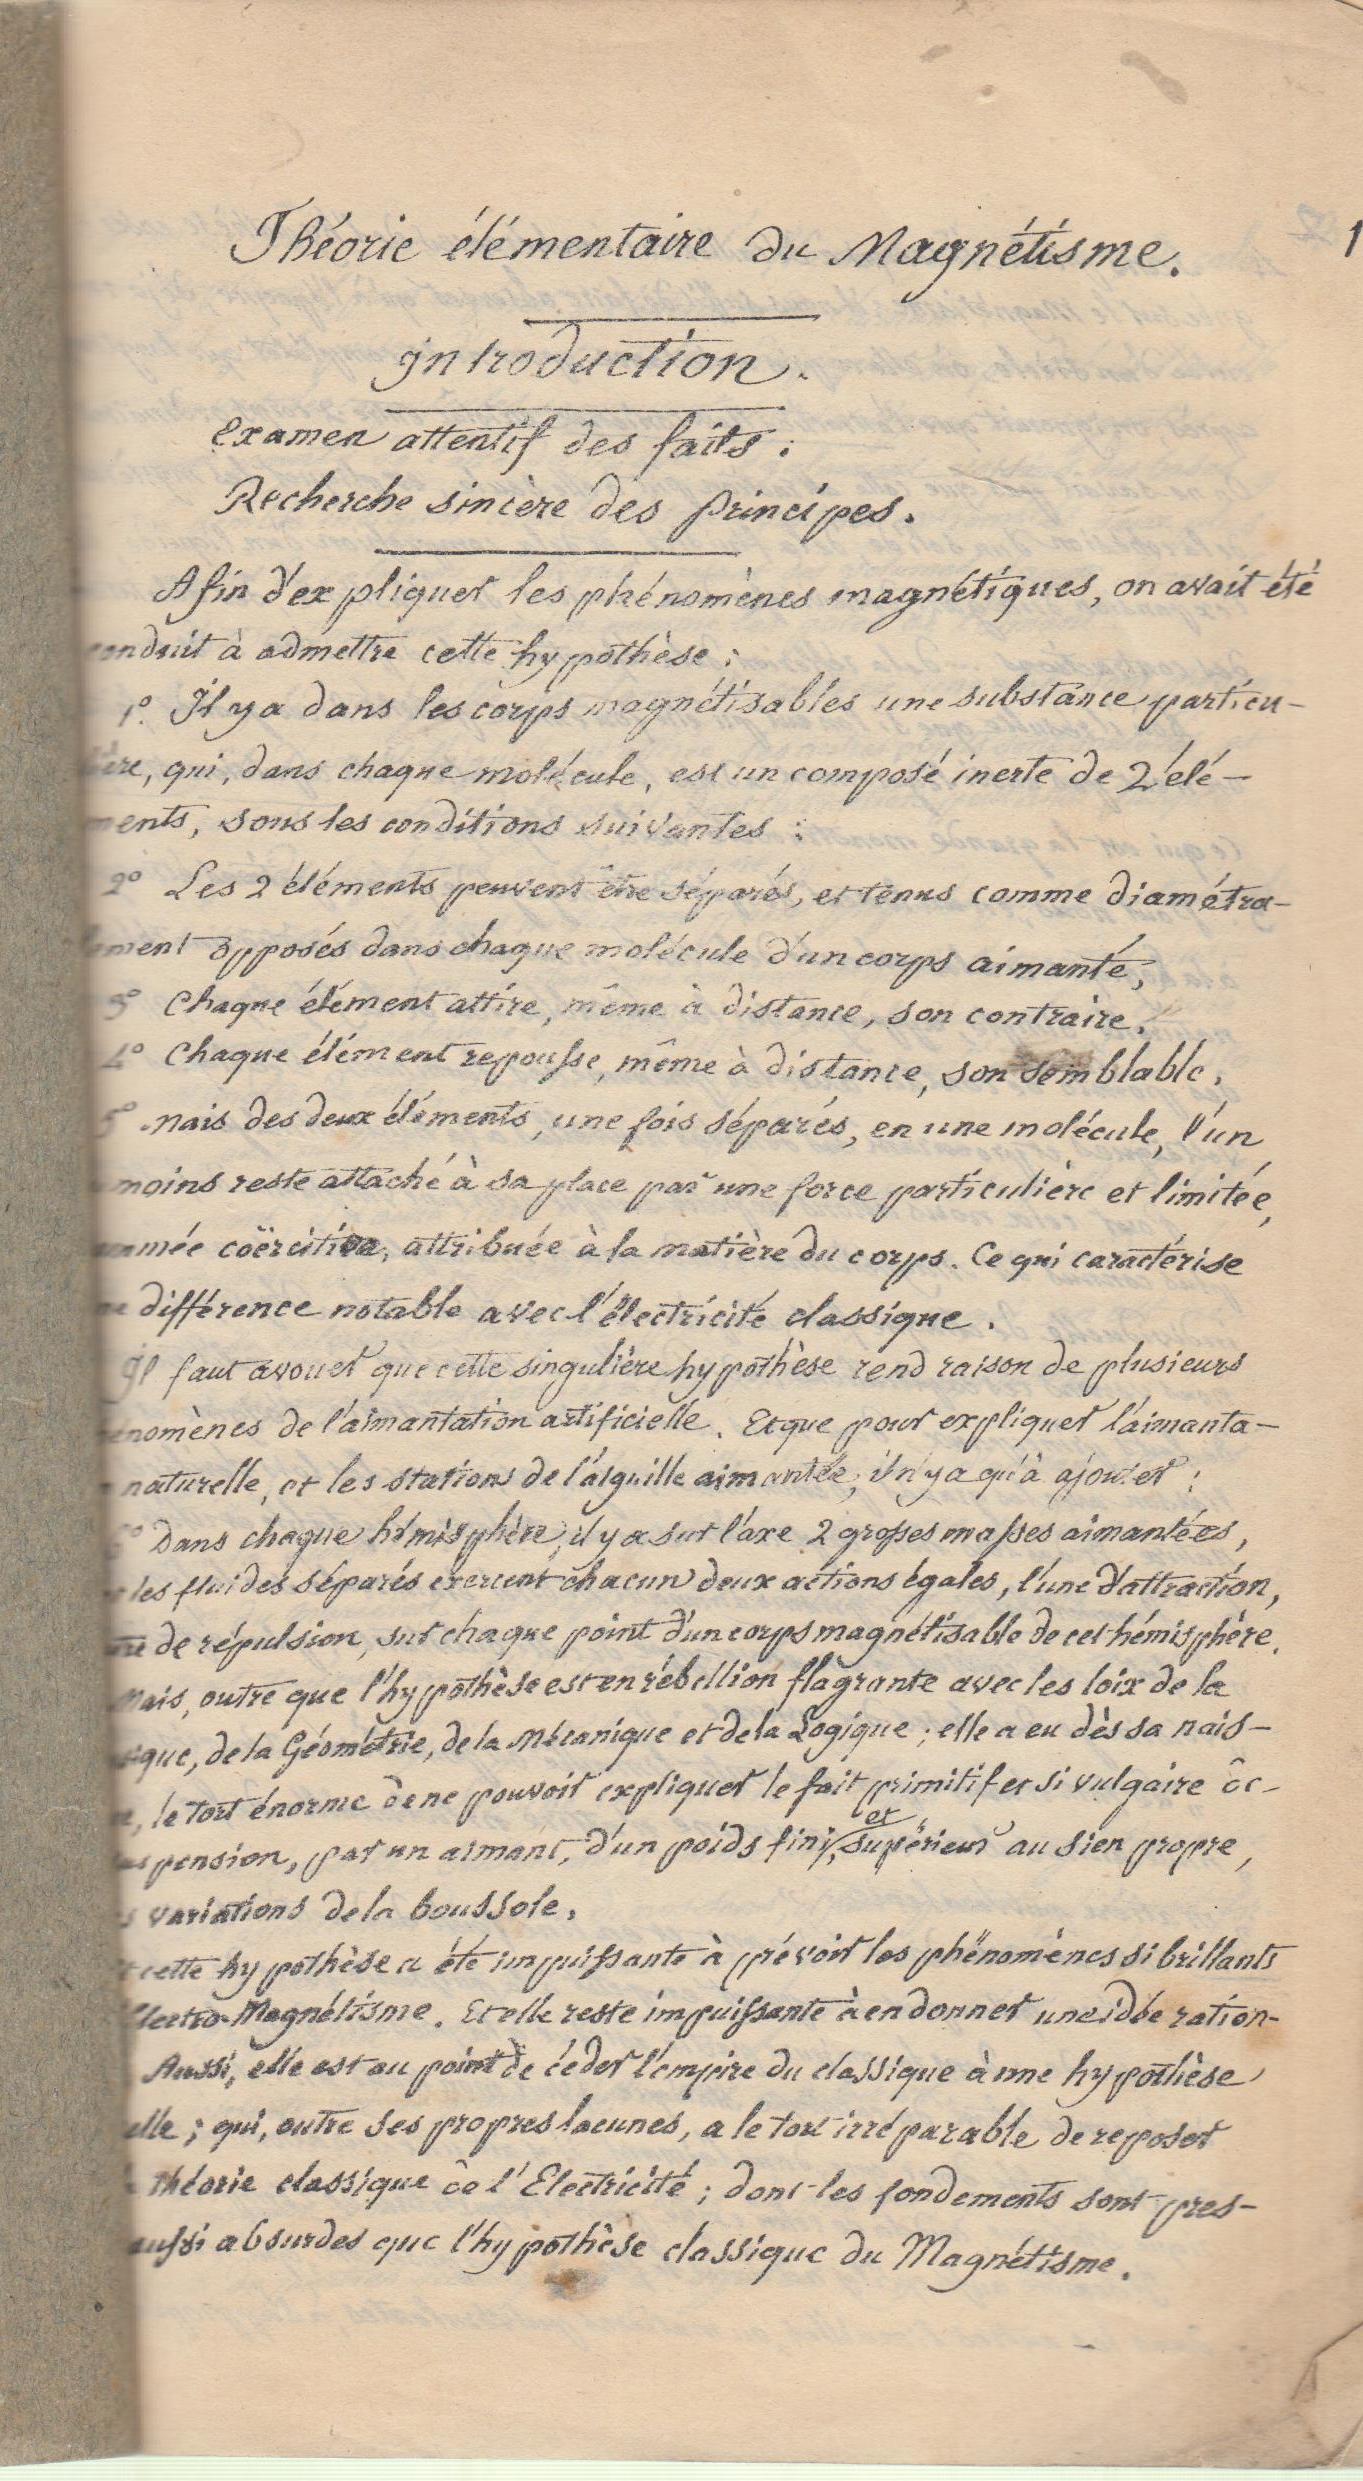 1
Théorie élémentaire du Magnétisme.
Introduction.
Examen attentif des faits :
Recherche sincère des principes.
Afin d'expliquer les phénomènes magnétiques, on avait été
conduit à admettre cette hypothèse :
1º. Il y a dans les corps magnétisables une substance particu-
lière, qui, dans chaque molécule, est un composé inerte de 2 élé-
ments, sous les conditions suivantes :
2º Les 2 éléments peuvent être séparés, et tenus comme diamétra-
lement opposés dans chaque molécule d'un corps aimanté,
3º Chaque élément attire, même à distance, son contraire.
4º Chaque élément repousse, même à distance, son semblable,
5º Mais des deux éléments, une fois séparés, en une molécule, l'un
moins reste attaché à sa place par une force particulière et limitée,
nommée coërcitive, attribuée à la matière du corps. Ce qui caractérise
une différence notable avec l'électricité classique.
Il faut avouer que cette singulière hypothèse rend raison de plusieurs
phénomènes de l'aimantation artificielle. Et que pour expliquer l'aimanta-
naturelle, et les stations de l'aiguille aimantée, il n'y a qu'à ajouter :
6º Dans chaque hémisphère, il y a sur l'axe 2 grosses masses aimantées,
les fluides séparés exercent chacun deux actions égales, l'une d'attraction,
de répulsion, sur chaque point d'un corps magnétisable de cet hémisphère.
Mais, outre que l'hypothèse est en rébellion flagrante avec les loix de la
sique, de la Géométrie, de la Mécanique et de la Logique ; elle a eu dès sa nais-
le tort énorme de ne pouvoir expliquer le fait primitif et si vulgaire de
pension, par un aimant, d'un poids fini, et supérieur au sien propre,
variations de la boussole.
cette hypothèse a été impuissante à prévoir les phénomènes si brillants
Electro-Magnétisme. Et elle reste impuissante à en donner une idée ration-
Aussi, elle est au point de céder l'empire du classique à une hypothèse
elle ; qui, outre ses propres lacunes, a le tort irréparable de reposer
théorie classique de l'Electricité ; dont les fondements sont pres-
aussi absurdes que l'hypothèse classique du Magnétisme.